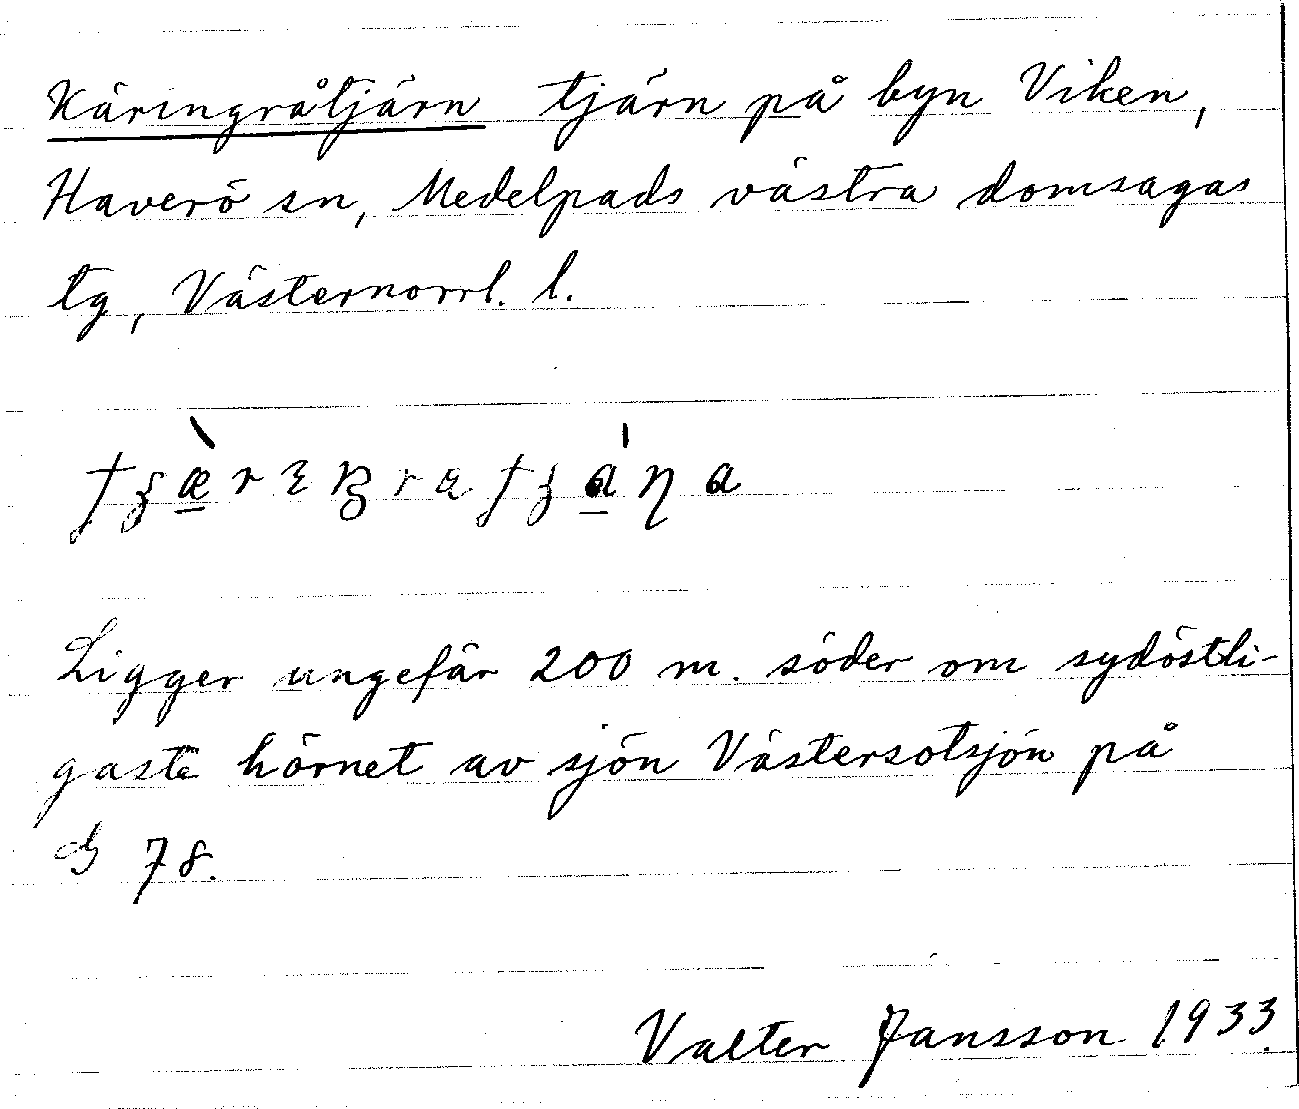 Käringråtjärn tjärn på byn Viken,
Haverö sn, Medelpads västra domsagas
tg, Västernorrl. l.
Ligger ungefär 200 m. söder om sydöstli-
gaste hörnet av sjön Västersotsjön på
78.
Valter Jansson 1933.